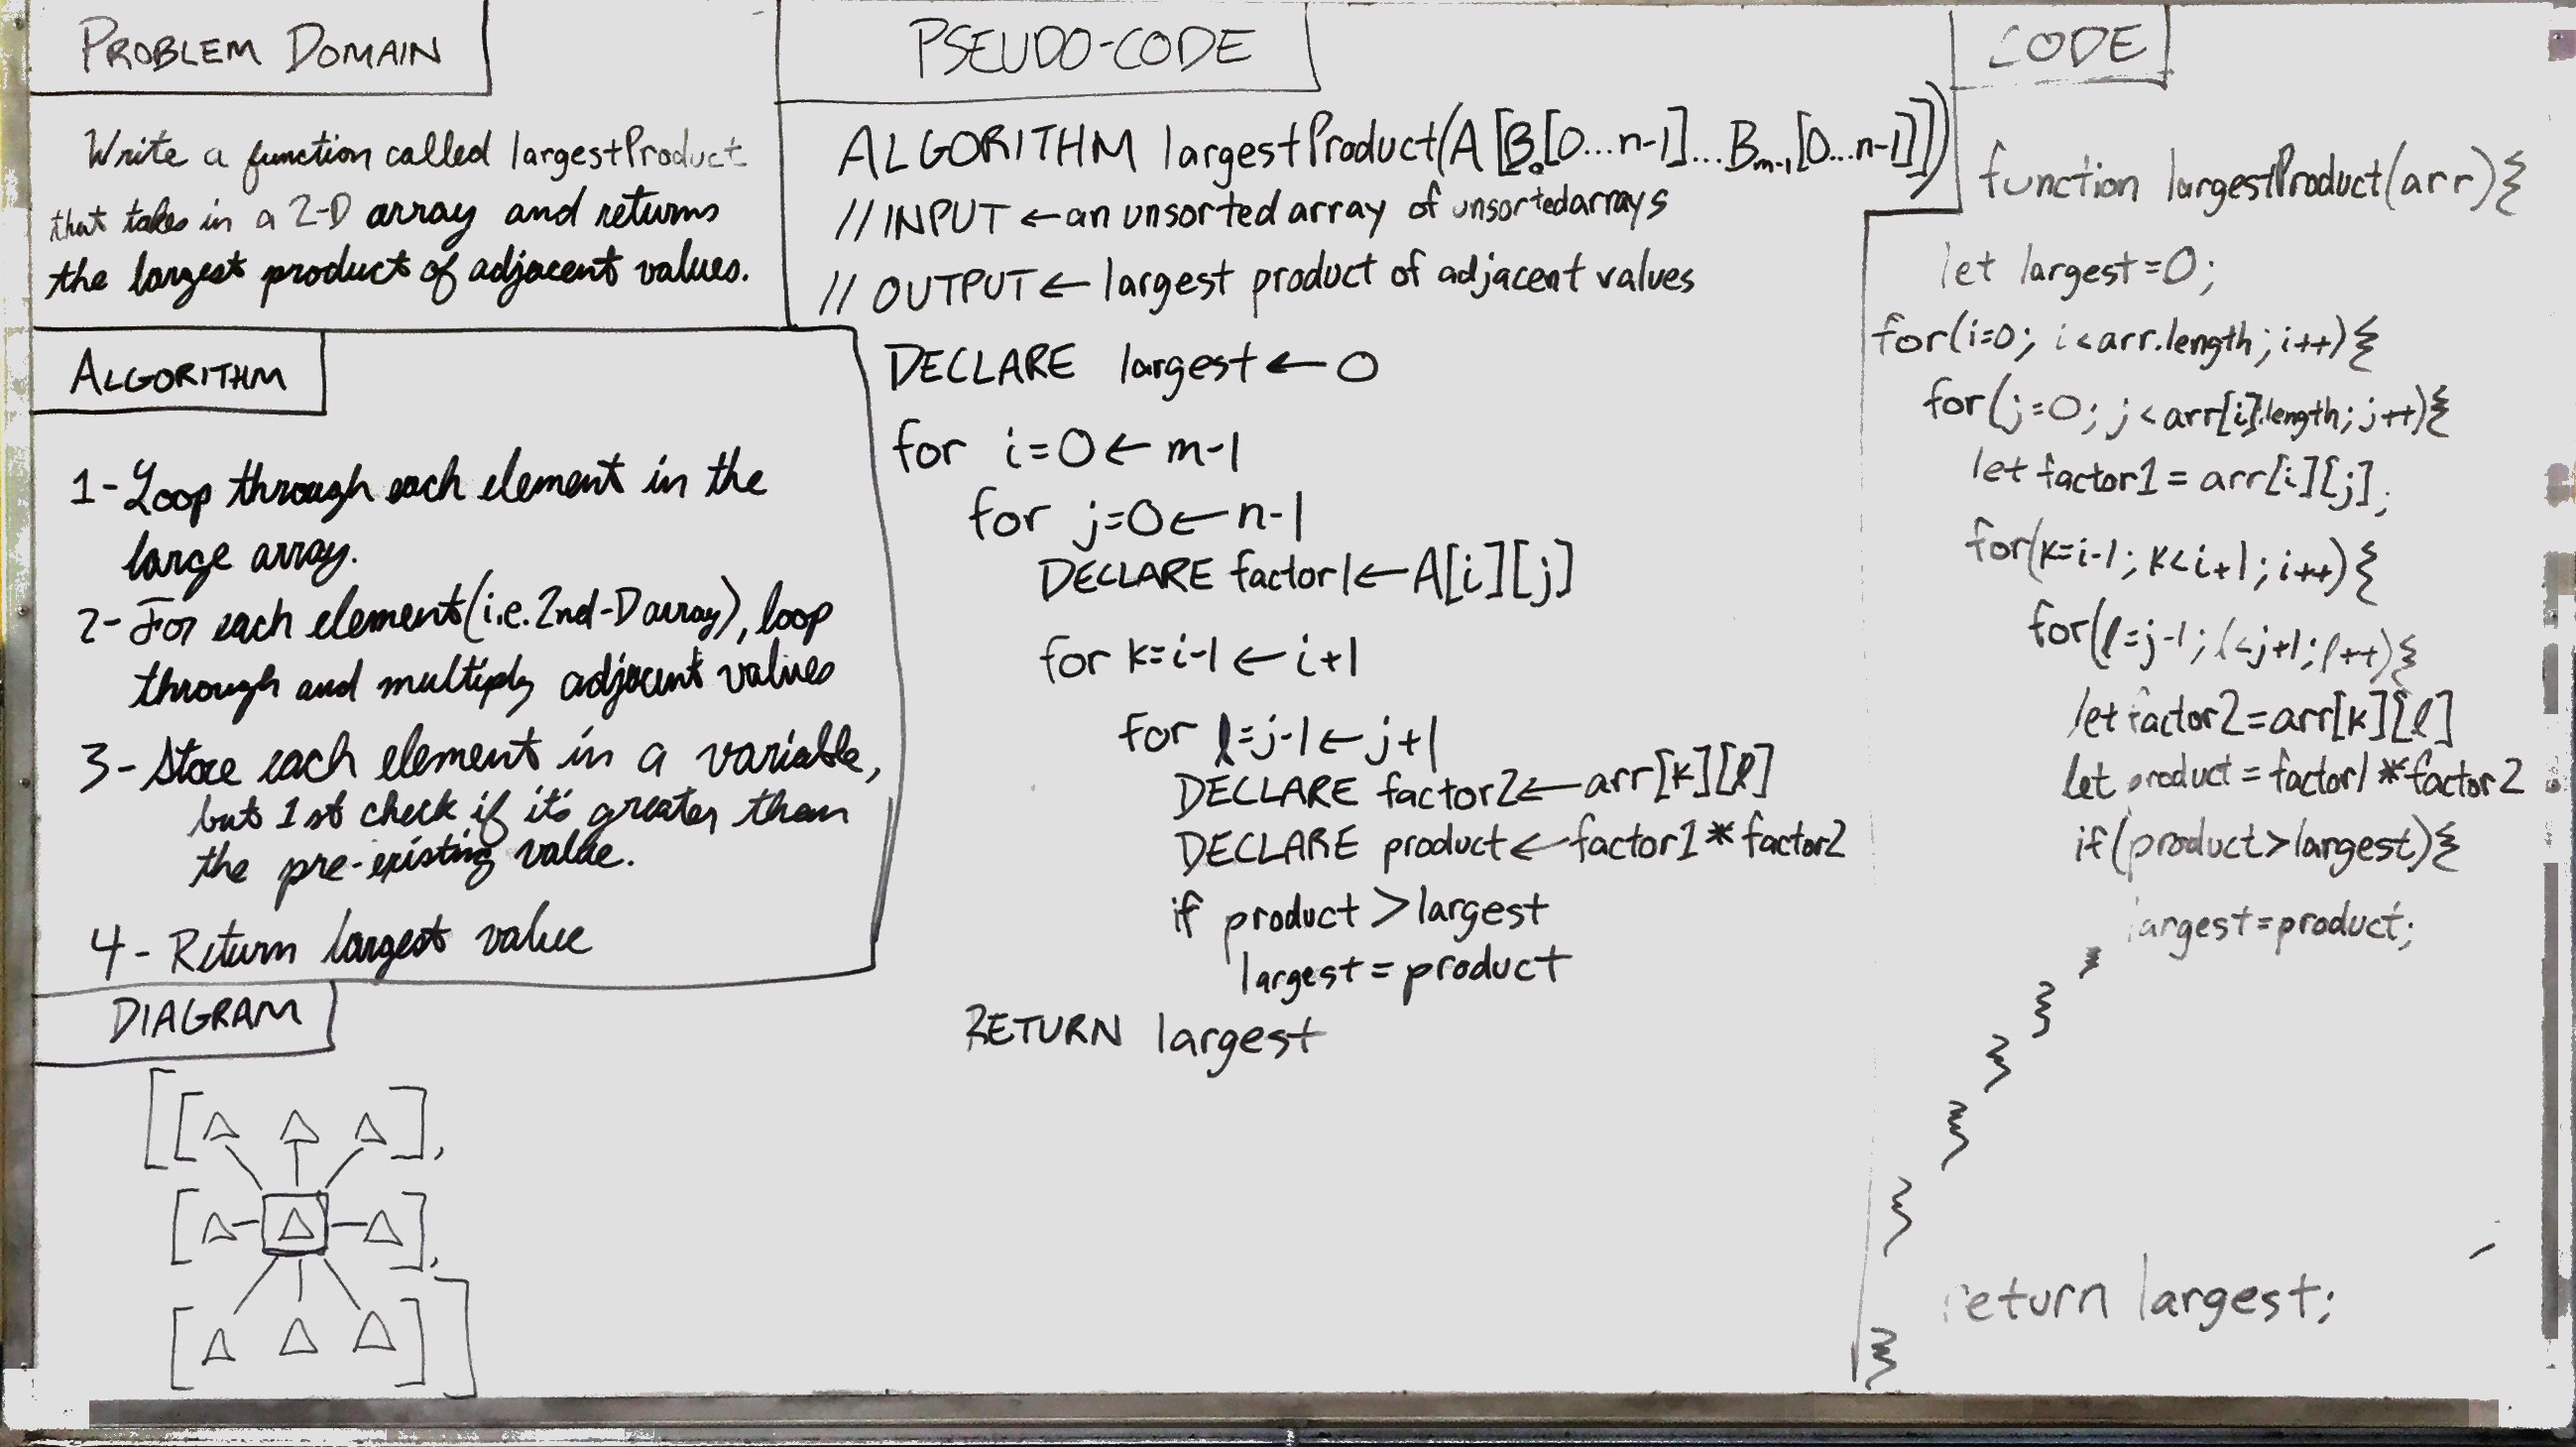 PROBLEM DOMAIN
Write a function called largestProduct
that takes in a 2-D array and returns
the largest product of adjacent values.
ALGORITHM
1- Loop through each element in the
large array.
2- For each element (i.e. 2nd-D array), loop
through and multiply adjacent values
3- Store each element in a variable,
but 1st check if it's greater than
the pre-existing value.
4- Return largest value
DIAGRAM
[[△ △ △],
[△ △ △],
[△ △ △]]
PSEUDO-CODE
ALGORITHM largestProduct(A[B₀[0...n-1]...Bm-1[0...n-1]])
// INPUT ← an unsorted array of unsorted arrays
// OUTPUT ← largest product of adjacent values
DECLARE largest ← 0
for i=0 ← m-1
for j=0 ← n-1
DECLARE factor1 ← A[i][j]
for k=i-1 ← i+1
for l=j-1 ← j+1
DECLARE factor2 ← arr[k][l]
DECLARE product ← factor1 * factor2
if product > largest
largest = product
RETURN largest
CODE
function largestProduct(arr){
let largest=0;
for(i=0; i<arr.length; i++){
for(j=0; j<arr[i].length; j++){
let factor1 = arr[i][j];
for(k=i-1; k<i+1; i++){
for(l=j-1; l<j+1; l++){
let factor2=arr[k][l]
let product = factor1 * factor2
if(product>largest){
largest=product;
}
}
}
}
}
return largest;
}